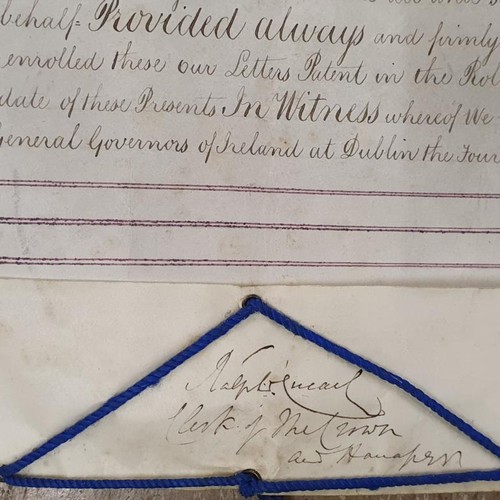 behalf= Provided always and firmly
enrolled these our Letters Patent in the Rol
date of these Presents In Witness whereof We
General Governors of Ireland at Dublin the Four
Ralph
Clerk of the Crown
and Hanaper